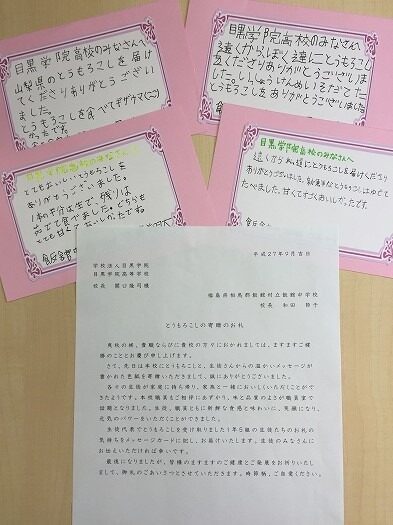 目黒学院高校のみなさんへ
山梨県のとうもろこしを届け
てくださりありがとうござい
ました。
とうもろこしを食べて
目黒学院高校のみなさんへ
遠くからぼく達にとうもろこしを
ありがとうございま
した。
とうもろこしをありがとうございました
目黒学院高校のみなさんへ
とてもおいしいとうもろこしを
ありがとうございました。
1本の半分は生で、残りは
ゆでて食べました。どちらも
とても甘くておいしかったです。
目黒学院高校のみなさんへ
遠くから私達にとうもろこしを届けてくださり
ありがとうございました。
たべました。甘くてすごくおいしかったです。
平成27年9月吉日
学校法人目黒学院
目黒学院高等学校
校長 関口隆司様
福島県相馬郡飯舘村立飯舘中学校
校長 和田 節子
とうもろこしの寄贈のお礼
爽秋の候、貴職ならびに貴校の方々におかれましては、ますますご健
勝のこととお慶び申し上げます。
さて、先日は本校にとうもろこしと、生徒さんからの温かいメッセージが
書かれた色紙を寄贈いただきまして、誠にありがとうございました。
各々の生徒が家庭に持ち帰り、家族と一緒においしくいただくことがで
きたようです。本校職員もご相伴にあずかり、味と品質のよさが職員室で
話題となりました。生徒、職員ともに新鮮な食感と味わいに、笑顔になり、
元気のパワーをいただくことができました。
生徒代表でとうもろこしを受け取りました1年5組の生徒たちのお礼の
気持ちをメッセージカードに記し、お届けいたします。生徒のみなさんに
お伝えいただければ幸いです。
最後になりましたが、皆様のますますのご健康とご発展をお祈りいたし
まして、御礼のごあいさつとさせていただきます。時節柄、ご自愛ください。